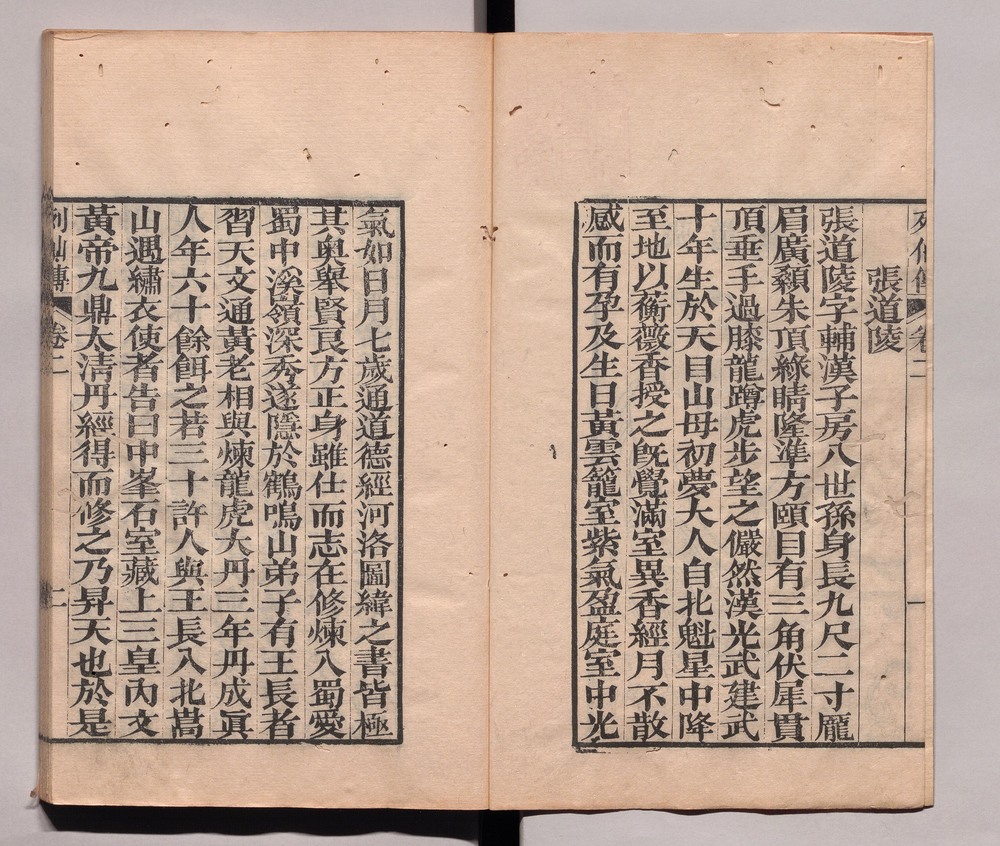 列仙傳 卷二 一
張道陵
張道陵字輔漢子房八世孫身長九尺二寸龎
眉廣顙朱頂綠睛隆準方頤目有三角伏犀貫
頂垂手過膝龍蹲虎步望之儼然漢光武建武
十年生於天目山母初夢大人自北魁星中降
至地以蘅薇香授之旣覺滿室異香經月不散
感而有孕及生日黃雲籠室紫氣盈庭室中光
氣如日月七歲通道德經河洛圖緯之書皆極
其奥舉賢良方正身雖仕而志在修煉入蜀愛
蜀中溪嶺深秀遂隱於鶴鳴山弟子有王長者
習天文通黃老相與煉龍虎大丹三年丹成眞
人年六十餘餌之若三十許人與王長入北嵩
山遇繡衣使者告曰中峯石室藏上三皇內文
黃帝九鼎太淸丹經得而修之乃昇天也於是
列仙傳 卷二 二